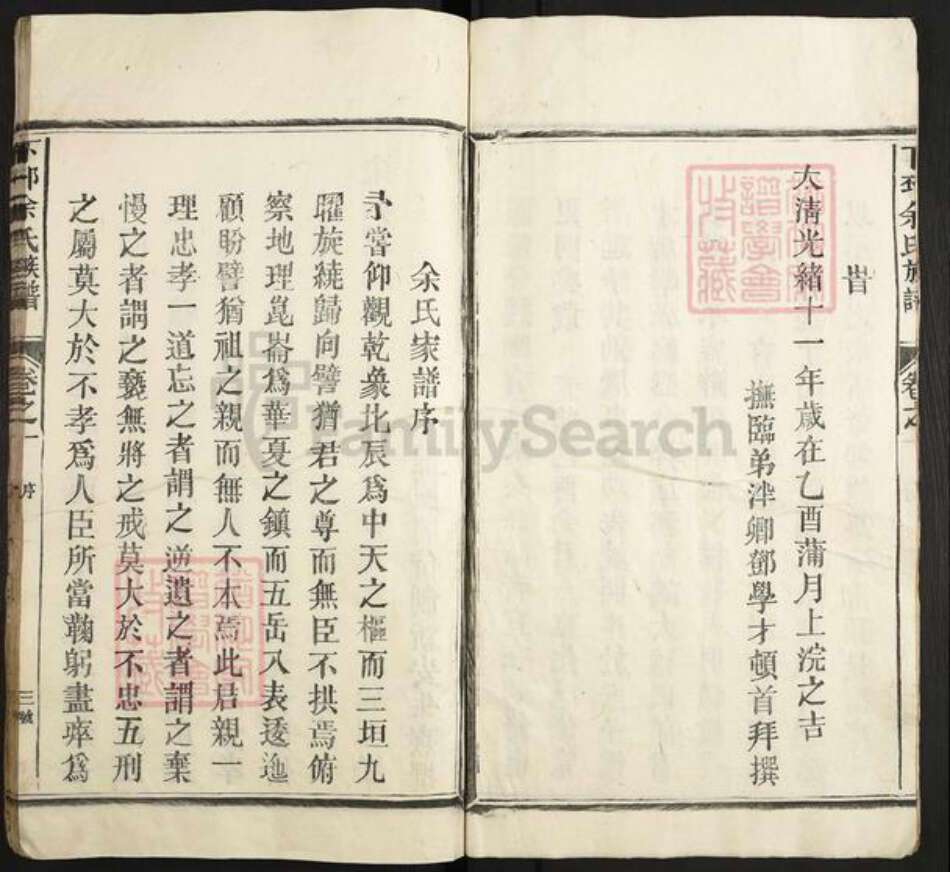 下邳余氏族譜
卷之
旹
大淸光緒十一年歲在乙酉蒲月上浣之吉
撫臨弟泮卿鄧學才頓首拜撰
譜學會
收藏
余氏家譜序
予嘗仰觀乾象北辰爲中天之樞而三垣九
曜旋繞歸向譬猶君之尊而無臣不拱焉俯
察地理崑崙爲華夏之鎭而五岳八表逶迤
顧盼譬猶祖之親而無人不本焉此君親一
理忠孝一道忘之者謂之逆遺之者謂之棄
慢之者謂之褻無將之戒莫大於不忠五刑
之屬莫大於不孝爲人臣所當鞠躬盡瘁爲
下邳余氏族譜
卷之一
序
三號
FamilySearch